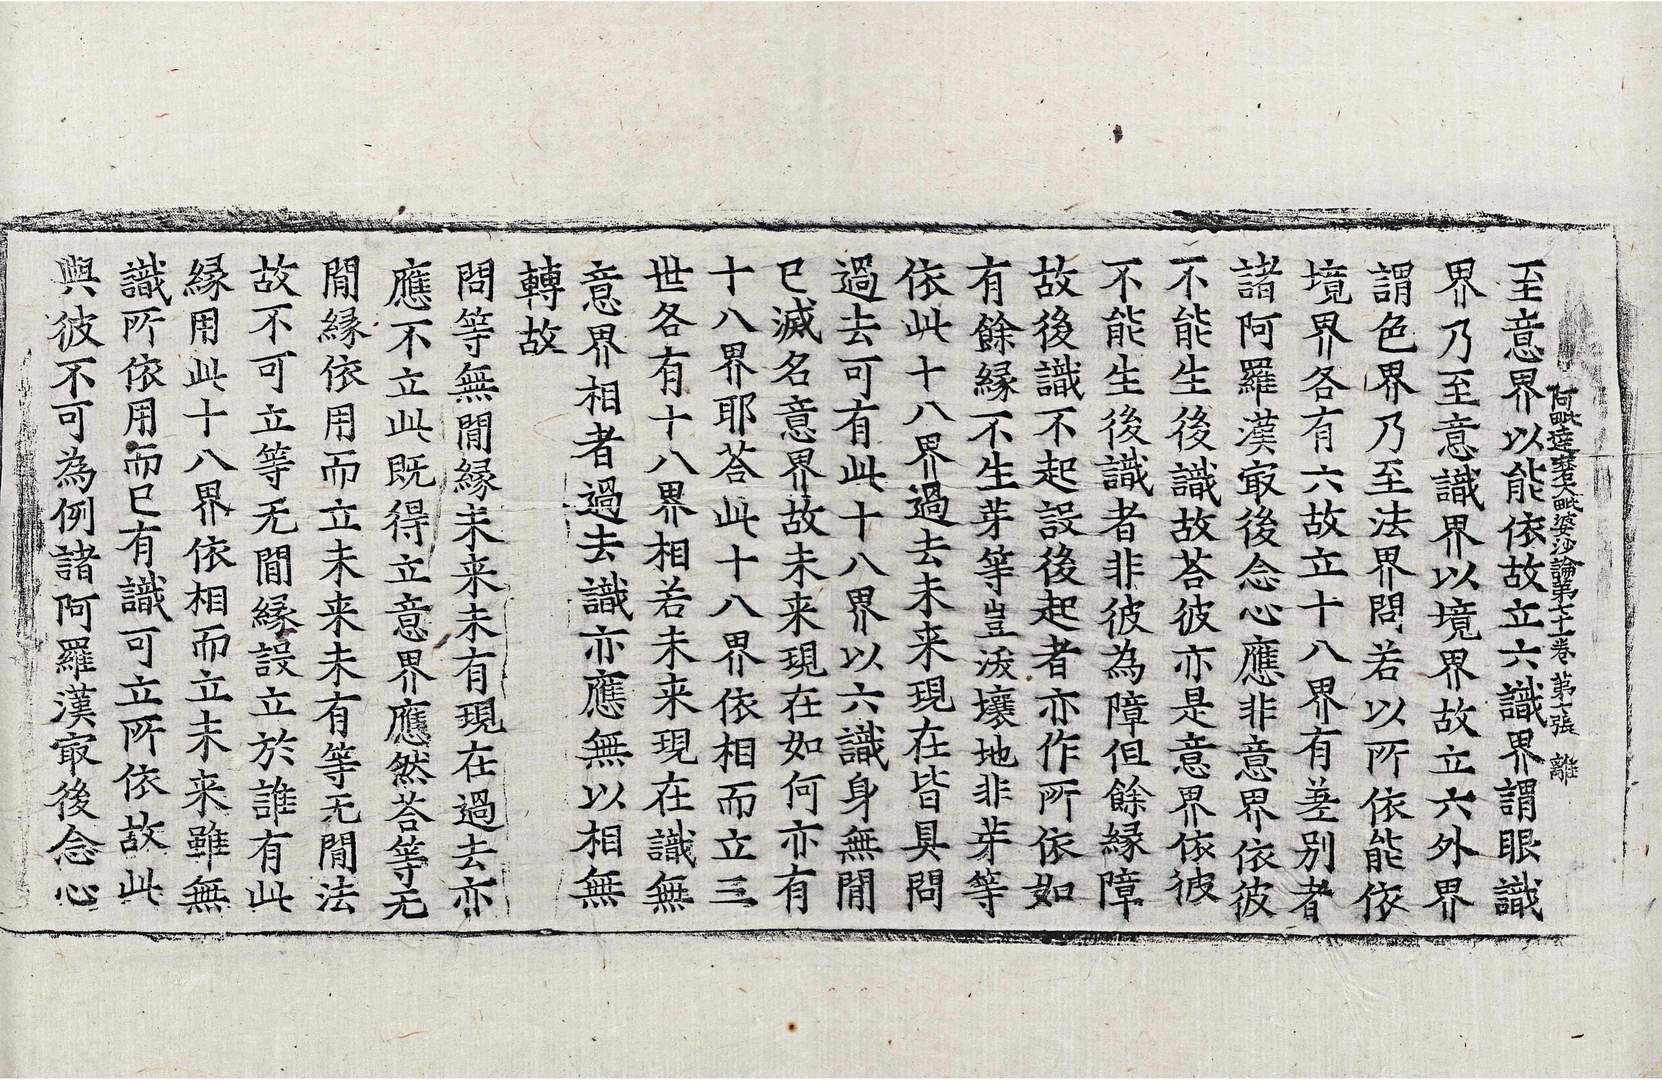 阿毗達磨大毗婆沙論第七十一卷 第七張 離
至意界以能依故立六識界謂眼識
界乃至意識界以境界故立六外界
謂色界乃至法界問若以所依能依
境界各有六故立十八界有差别者
諸阿羅漢㝡後念心應非意界依彼
不能生後識故荅彼亦是意界依彼
不能生後識者非彼為障但餘緣障
故後識不起設後起者亦作所依如
有餘緣不生芽等豈沃壤地非芽等
依此十八界過去未来現在皆具問
過去可有此十八界以六識身無閒
已滅名意界故未来現在如何亦有
十八界耶荅此十八界依相而立三
世各有十八界相若未来現在識無
意界相者過去識亦應無以相無
轉故
問等無閒緣未来未有現在過去亦
應不立此既得立意界應然荅等无
閒緣依用而立未来未有等无閒法
故不可立等无閒緣設立於誰有此
緣用此十八界依相而立未来雖無
識所依用而已有識可立所依故此
與彼不可為例諸阿羅漢㝡後念心